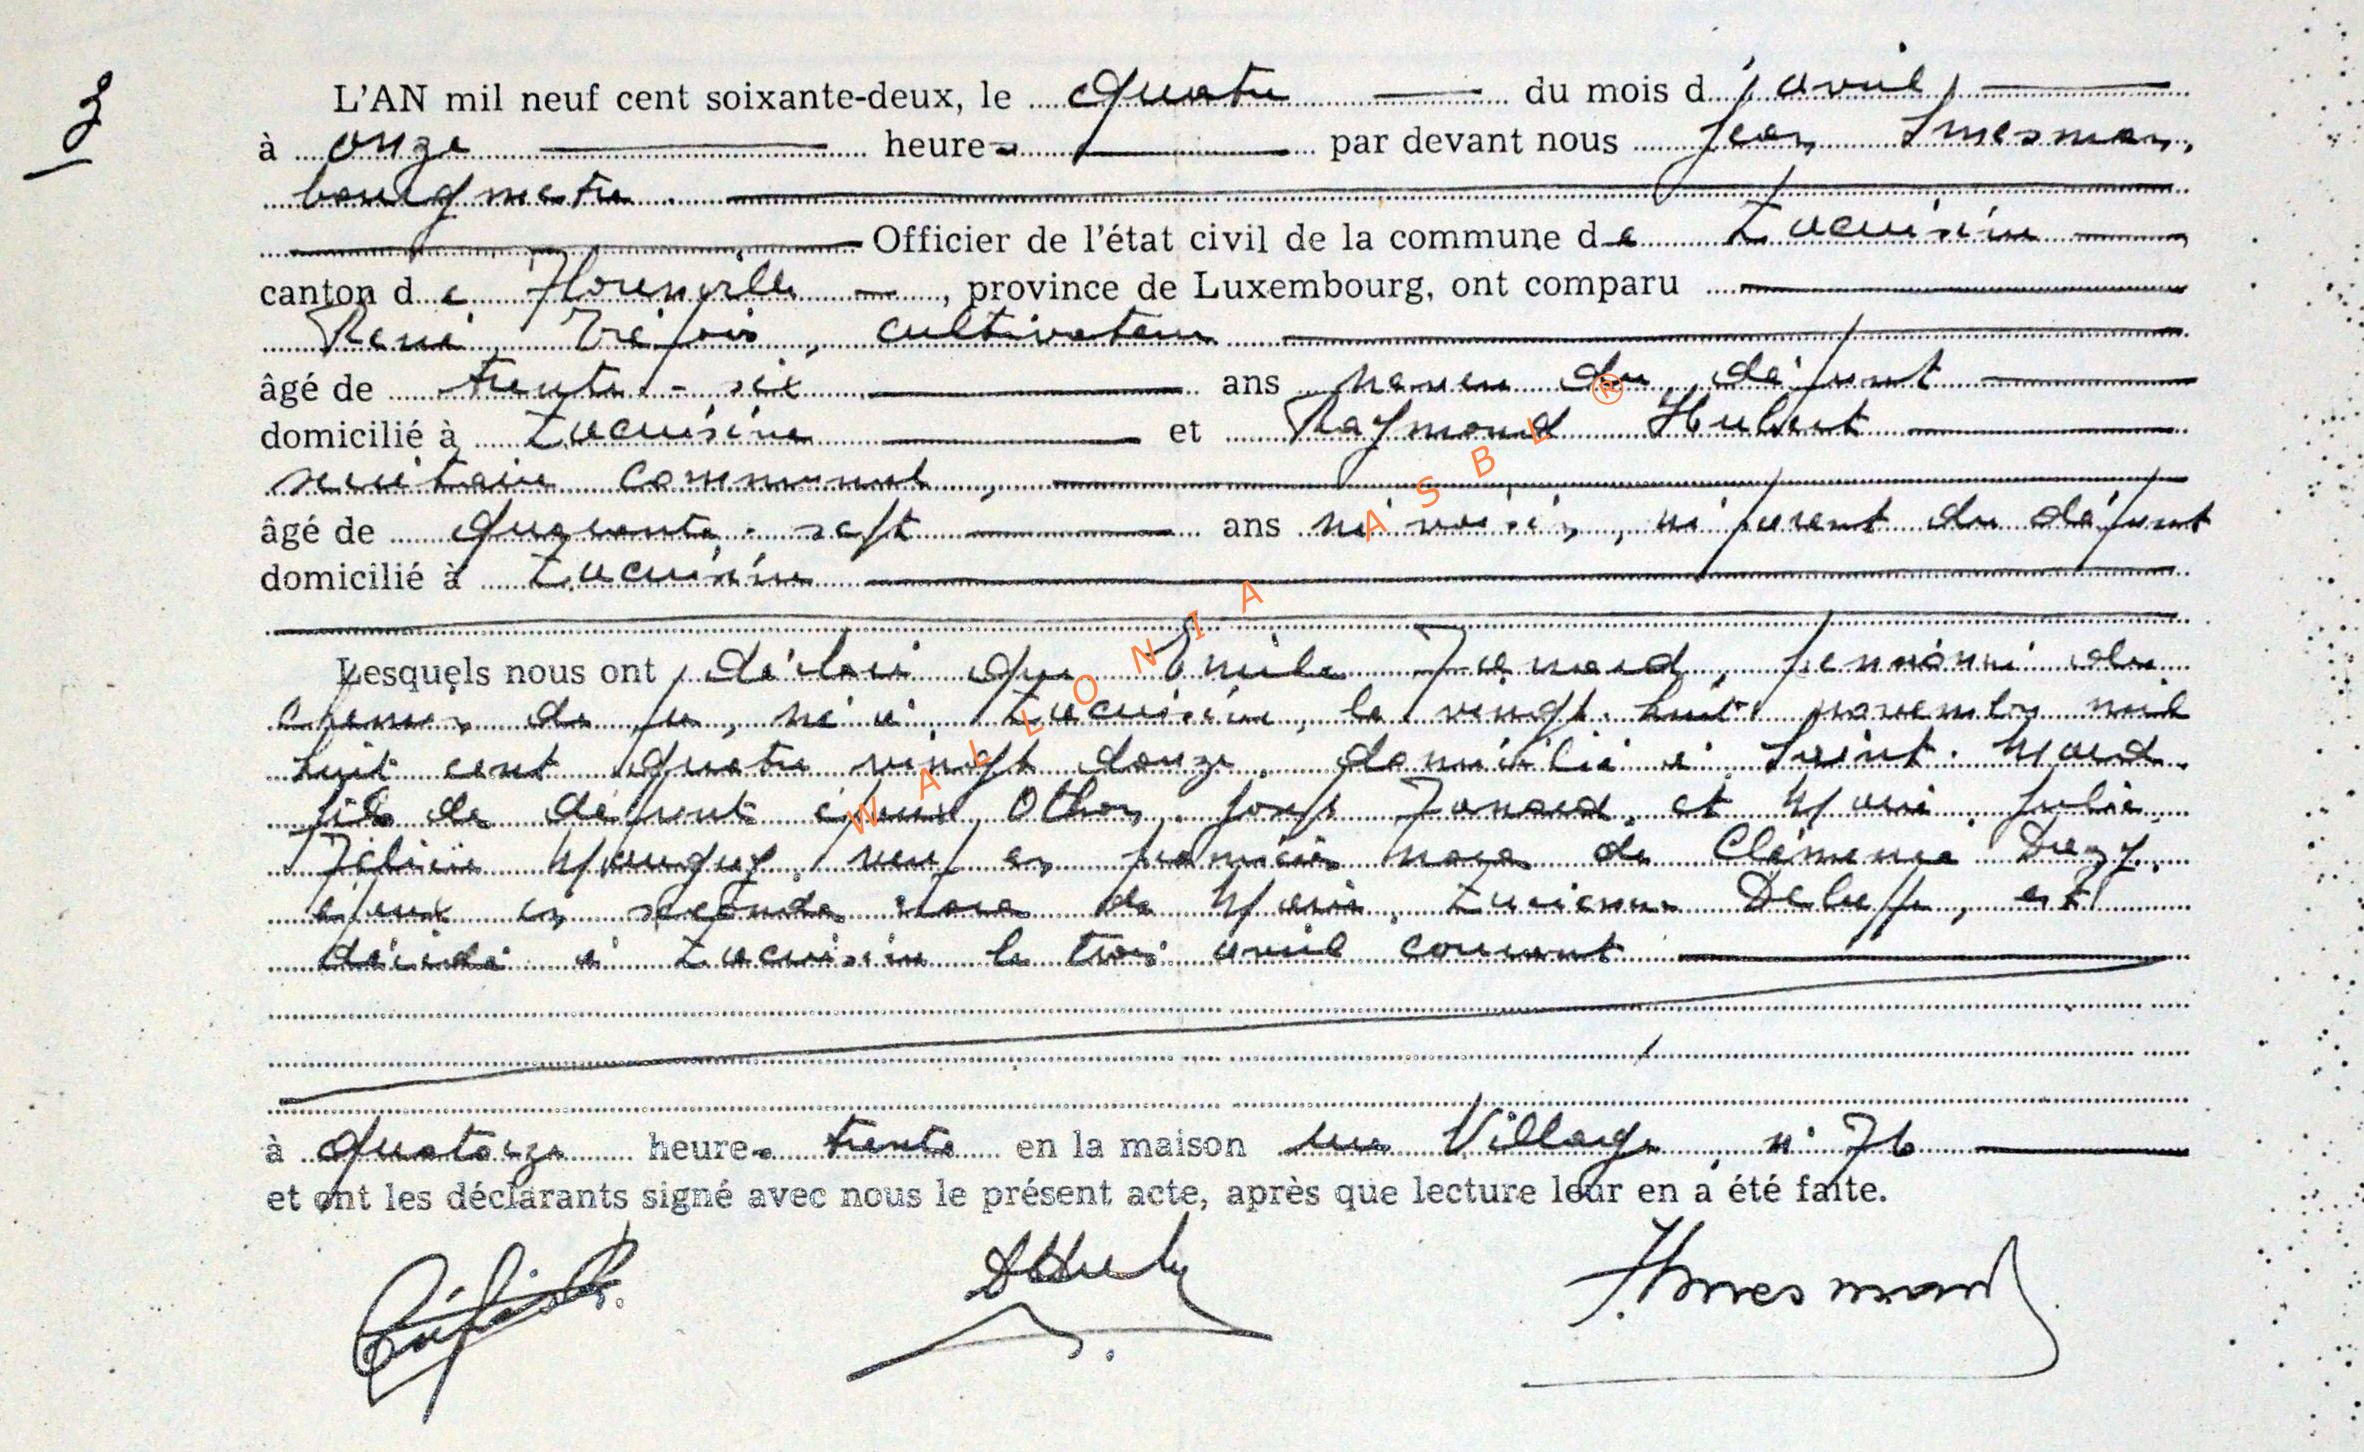 3
L'AN mil neuf cent soixante-deux, le quatre du mois d'avril
à onze heures par devant nous Jean Smesman,
bourgmestre
Officier de l'état civil de la commune de Lacuisine
canton de Florenville, province de Luxembourg, ont comparu
René Tréfois, cultivateur
âgé de trente-six ans neveu du défunt
domicilié à Lacuisine et Raymond Hubert
secrétaire communal,
âgé de quarante-sept ans ni voisin, ni parent du défunt
domicilié à Lacuisine
Lesquels nous ont déclaré que Emile Fonard, pensionné du
chemin de fer, né à Lacuisine, le vingt-huit novembre mil
huit cent quatre vingt douze, domicilié à Saint-Mard,
fils de défunts époux Othon Joseph Fonard, et Marie Julie
Félicie veuf en premières noces de Clémence
époux en secondes noces de Marie Lucienne est
décédé à Lacuisine le trois avril courant
à quatorze heures trente en la maison sise Village n° 76
et ont les déclarants signé avec nous le présent acte, après que lecture leur en a été faite.
WALLONIA ASBL ®